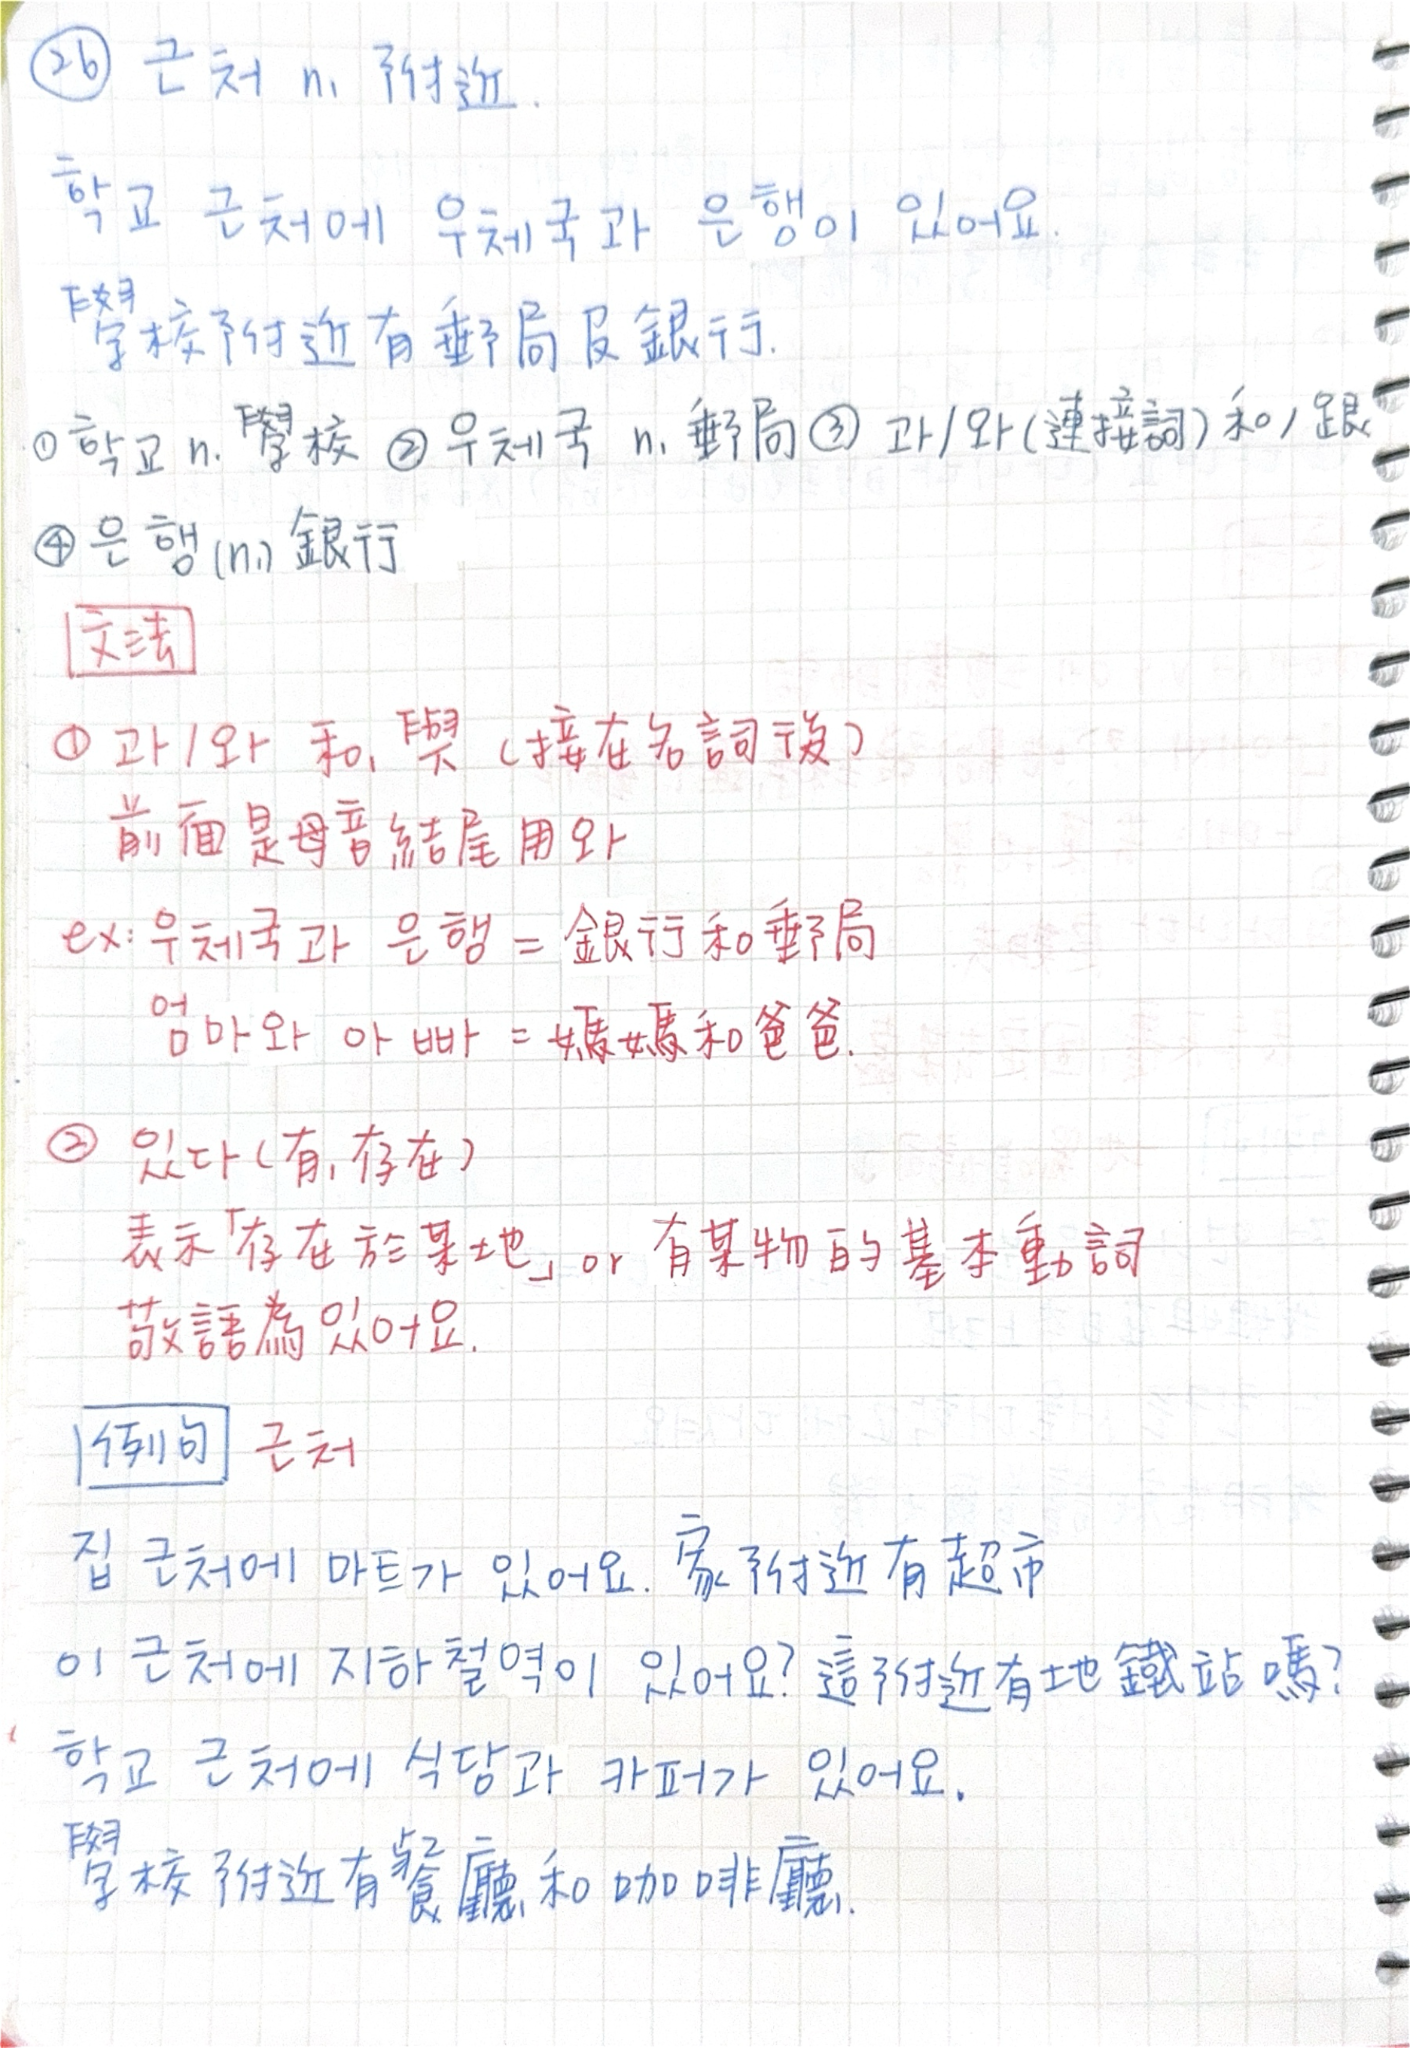 26 근처 n. 附近.
학교 근처에 우체국과 은행이 있어요.
學校附近有郵局及銀行.
① 학교 n. 學校 ② 우체국 n. 郵局 ③ 과/와(連接詞) 和/跟
④ 은행(n.) 銀行
文法
① 과/와 和, 與 (接在名詞後)
前面是母音結尾用와
ex: 우체국과 은행 = 銀行和郵局
엄마와 아빠 = 媽媽和爸爸.
② 있다 (有, 存在)
表示「存在於某地」or 有某物的基本動詞
敬語為있어요.
例句 근처
집 근처에 마트가 있어요. 家附近有超市
이 근처에 지하철역이 있어요? 這附近有地鐵站嗎?
학교 근처에 식당과 카퍼가 있어요.
學校附近有餐廳和咖啡廳.